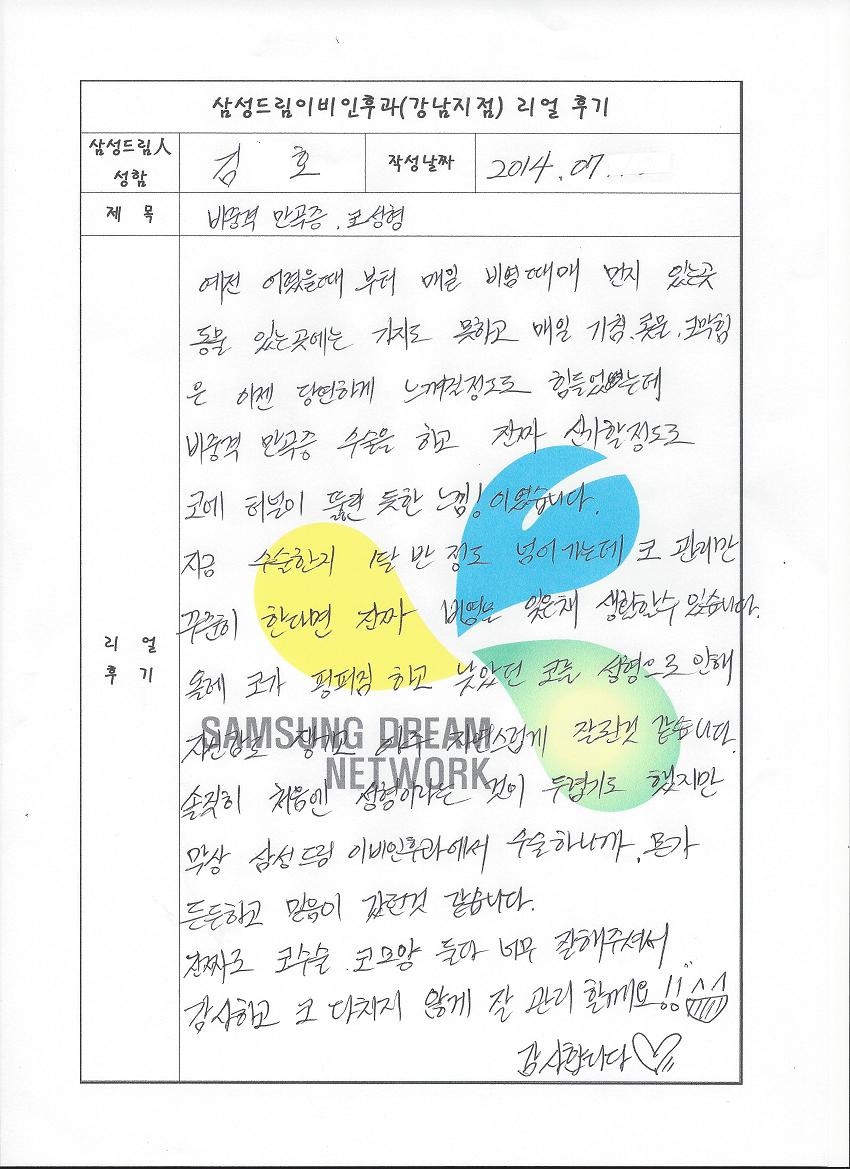 삼성드림이비인후과(강남지점) 리얼 후기
삼성드림人 성함 김 호 작성날짜 2014.07....
제 목 비중격 만곡증, 코성형
리 얼 후 기
예전 어렸을때 부터 매일 비염때매 먼지 있는곳
동물 있는곳에는 가지도 못하고 매일 기침, 콧물, 코막힘
은 이젠 당연하게 느껴질정도로 힘들었는데
비중격 만곡증 수술을 하고 진짜 신기할정도로
코에 터널이 뚫린 듯한 느낌! 이였습니다.
지금 수술한지 1달 반 정도 넘어가는데 코 관리만
꾸준히 한다면 진짜 비염은 잊은채 생활할수 있습니다.
올해 코가 휭퍼짐 하고 낮았던 코를 성형으로 인해
자신감도 생기고 아주 자연스럽게 잘된것 같습니다.
솔직히 처음엔 성형이라는 것이 두렵기도 했지만
막상 삼성드림 이비인후과에서 수술하니까, 몬가
든든하고 믿음이 갔던것 같습니다.
진짜로 코수술 코모양 둘다 너무 잘해주셔서
감사하고 코 다치지 않게 잘 관리 할께요!! ^^
감사합니다♡
SAMSUNG DREAM
NETWORK